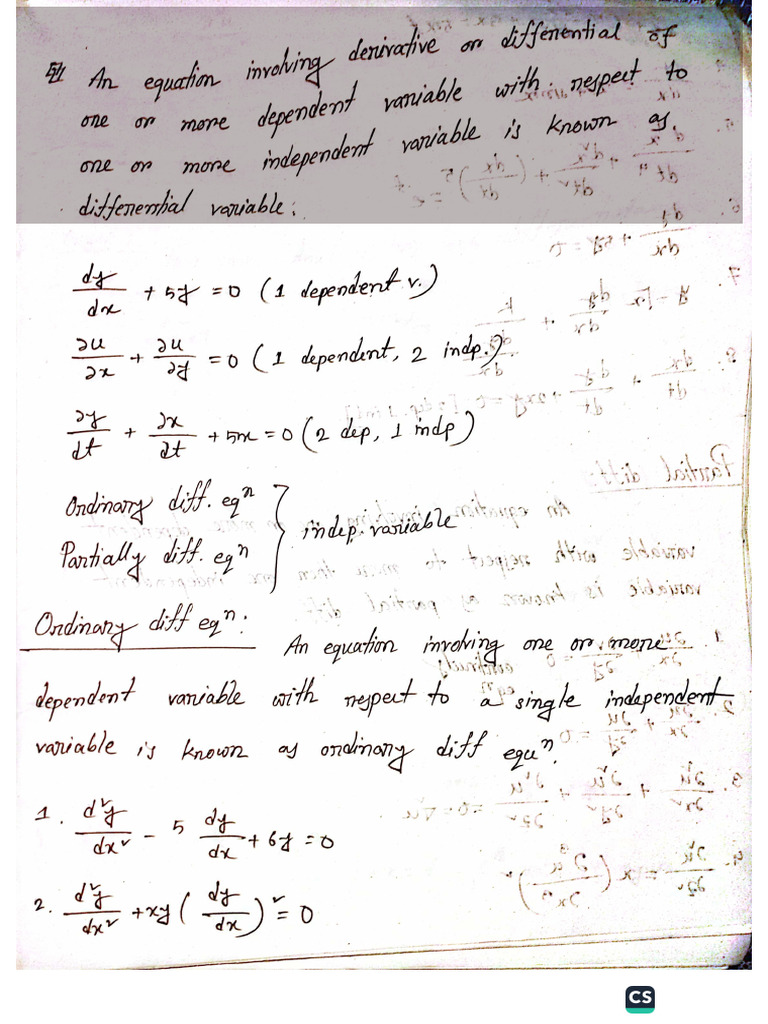 An equation involving derivative or differential of
one or more dependent variable with respect to
one or more independent variable is known as
differential variable:
dy/dx + 5y = 0 (1 dependent v.)
∂u/∂x + ∂u/∂y = 0 (1 dependent, 2 indp.)
∂y/dt + ∂x/∂t + 5x = 0 (2 dep, 1 indp)
Ordinary diff. eqⁿ
Partially diff. eqⁿ
} indep. variable
Ordinary diff eqⁿ: An equation involving one or more
dependent variable with respect to a single independent
variable is known as ordinary diff equⁿ.
1. d²y/dx² - 5 dy/dx + 6y = 0
2. d²y/dx² + xy (dy/dx)² = 0
CS